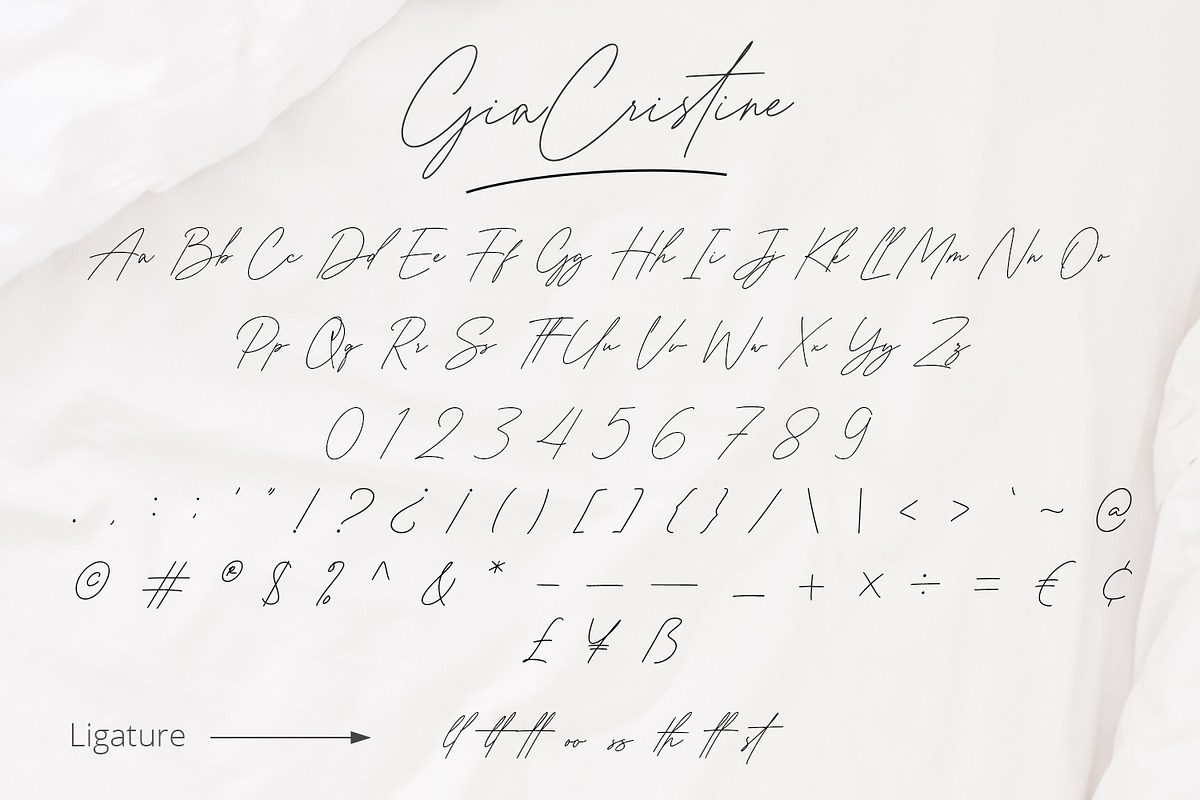 GiaCristine
Aa Bb Cc Dd Ee Ff Gg Hh Ii Jj Kk Ll Mm Nn Oo
Pp Qq Rr Ss Tt Uu Vv Ww Xx Yy Zz
0 1 2 3 4 5 6 7 8 9
. , : ; ' " ! ? ¿ ¡ ( ) [ ] { } / \ | < > ` ~ @
© # ® $ % ^ & * - – — _ + × ÷ = € ¢
£ ¥ ß
Ligature ll tt oo ss th st